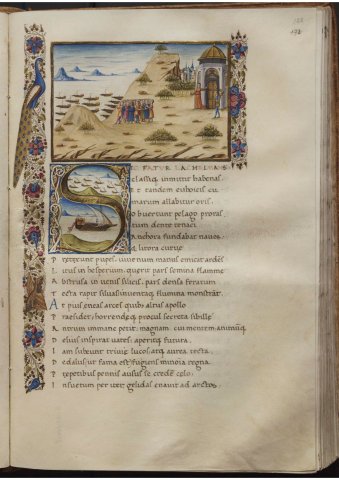 172
SIC FATUR LACHRIMANS
classiq immittit habenas.
Et tandem euboicis cu
marum allabitur oris.
Obuertunt pelago proras.
tum dente tenaci
Anchora fundabat naues.
& litora curue
Pretexunt puppes. iuuenum manus emicat ardens
Litus in hesperium. querit pars semina flamme
Abstrusa in uenis silicis. pars densa ferarum
Tecta rapit siluas inuentaq flumina monstrat.
At pius eneas arces quibus altus apollo
Praesidet, horrendeq procul secreta sibille
Antrum immane petit: magnam cui mentem animumq
Delius inspirat uates: aperitq futura.
Iam subeunt triuie lucos, atq aurea tecta.
Dedalus, ut fama est, fugiens minoia regna.
Prepetibus pennis ausus se credere celo.
Insuetum per iter gelidas enauit ad arctos.